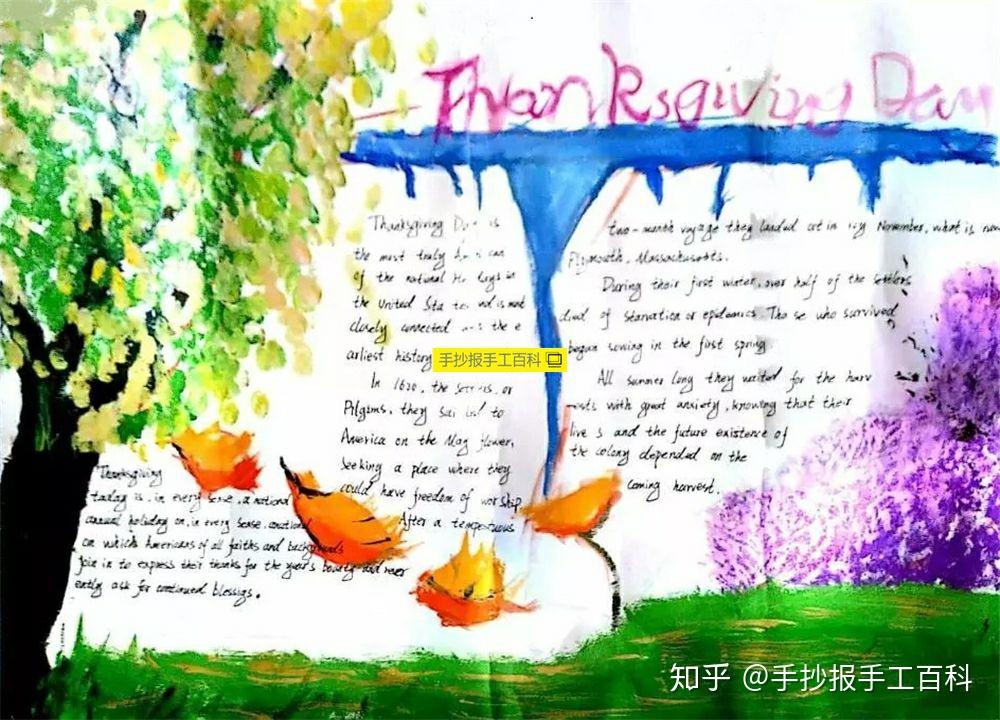 Thanksgiving Day
Thanksgiving Day is
the most truly
of the national
the United Sta tes and is most
closely connected the e
arliest history
In 1620, the or
Pilgrims, they to
America on the May flower,
Seeking a place where they
could have freedom of wor ship
After a tempestuous
two-month voyage they landed November, what is now
Plymouth, Massachusetts.
During their first winter, over half of the settlers
died of starvation or epidemics. Tho se who survived
began sowing in the first spring.
All summer long they waited for the harv
ests with great anxiety, knowing that their
live s and the future existence of
the colony depended on the
coming harvest.
Thanksgiving
today is, in every sense, a national
annual holiday on, in every sense,
on which Americans of all faiths and backgrounds
join in to express their thanks for the year's bounty and rever
ently ask for continued blessigs.
手抄报手工百科
知乎 @手抄报手工百科